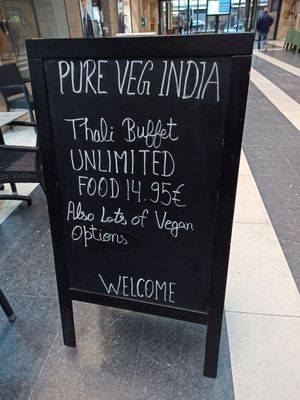 PURE VEG INDIA
Thali Buffet
UNLIMITED
FOOD 14.95€
Also Lots of Vegan
Options
WELCOME